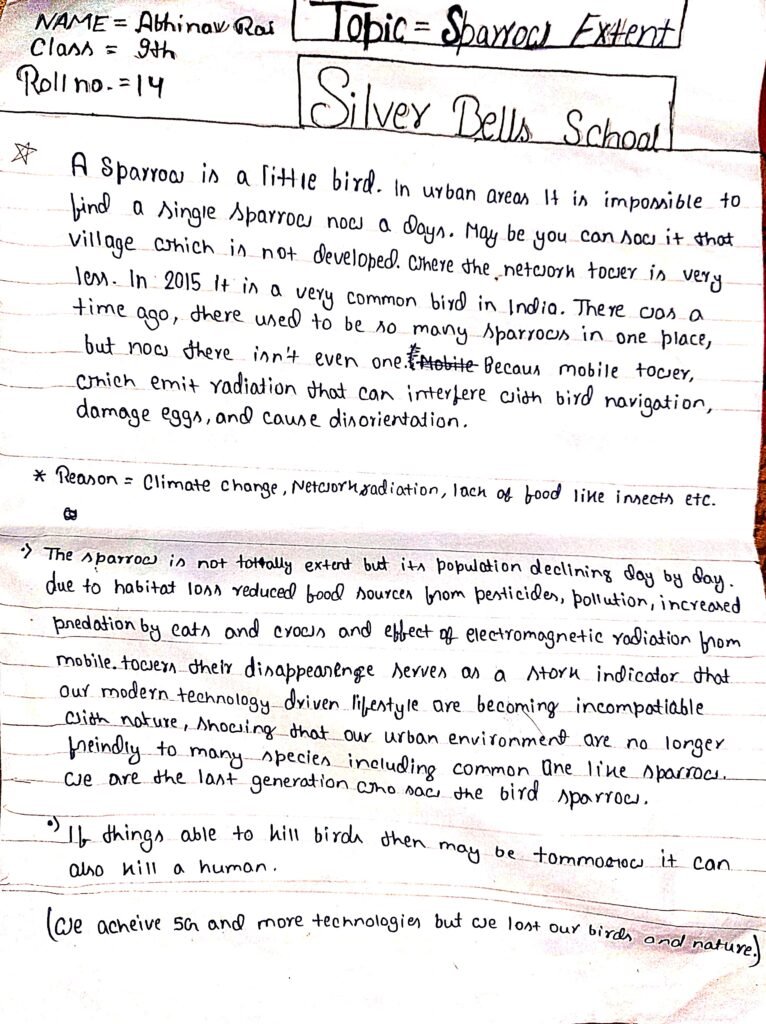 NAME = Abhinav Rai
Class = 9th
Roll no. = 14
Topic = Sparrow Extent
Silver Bells School
A Sparrow is a little bird. In urban areas It is impossible to
find a single sparrow now a days. May be you can saw it that
village which is not developed. Where the network tower is very
less. In 2015 It is a very common bird in India. There was a
time ago, there used to be so many sparrows in one place,
but now there isn't even one. Mobile Becaus mobile tower,
which emit radiation that can interfere with bird navigation,
damage eggs, and cause disorientation.
* Reason = Climate change, Network radiation, lack of food like insects etc.
The sparrow is not tottally extent but its population declining day by day.
due to habitat loss reduced food sources from pesticides, pollution, increased
predation by cats and crows and effect of electromagnetic radiation from
mobile. towers their disappearenge serves as a stork indicator that
our modern technology driven lifestyle are becoming incompatiable
with nature, showing that our urban environment are no longer
freindly to many species including common one like sparrow.
we are the last generation who saw the bird sparrow.
If things able to kill birds then may be tommorow it can
also kill a human.
(We acheive 5G and more technologies but we lost our birds and nature.)